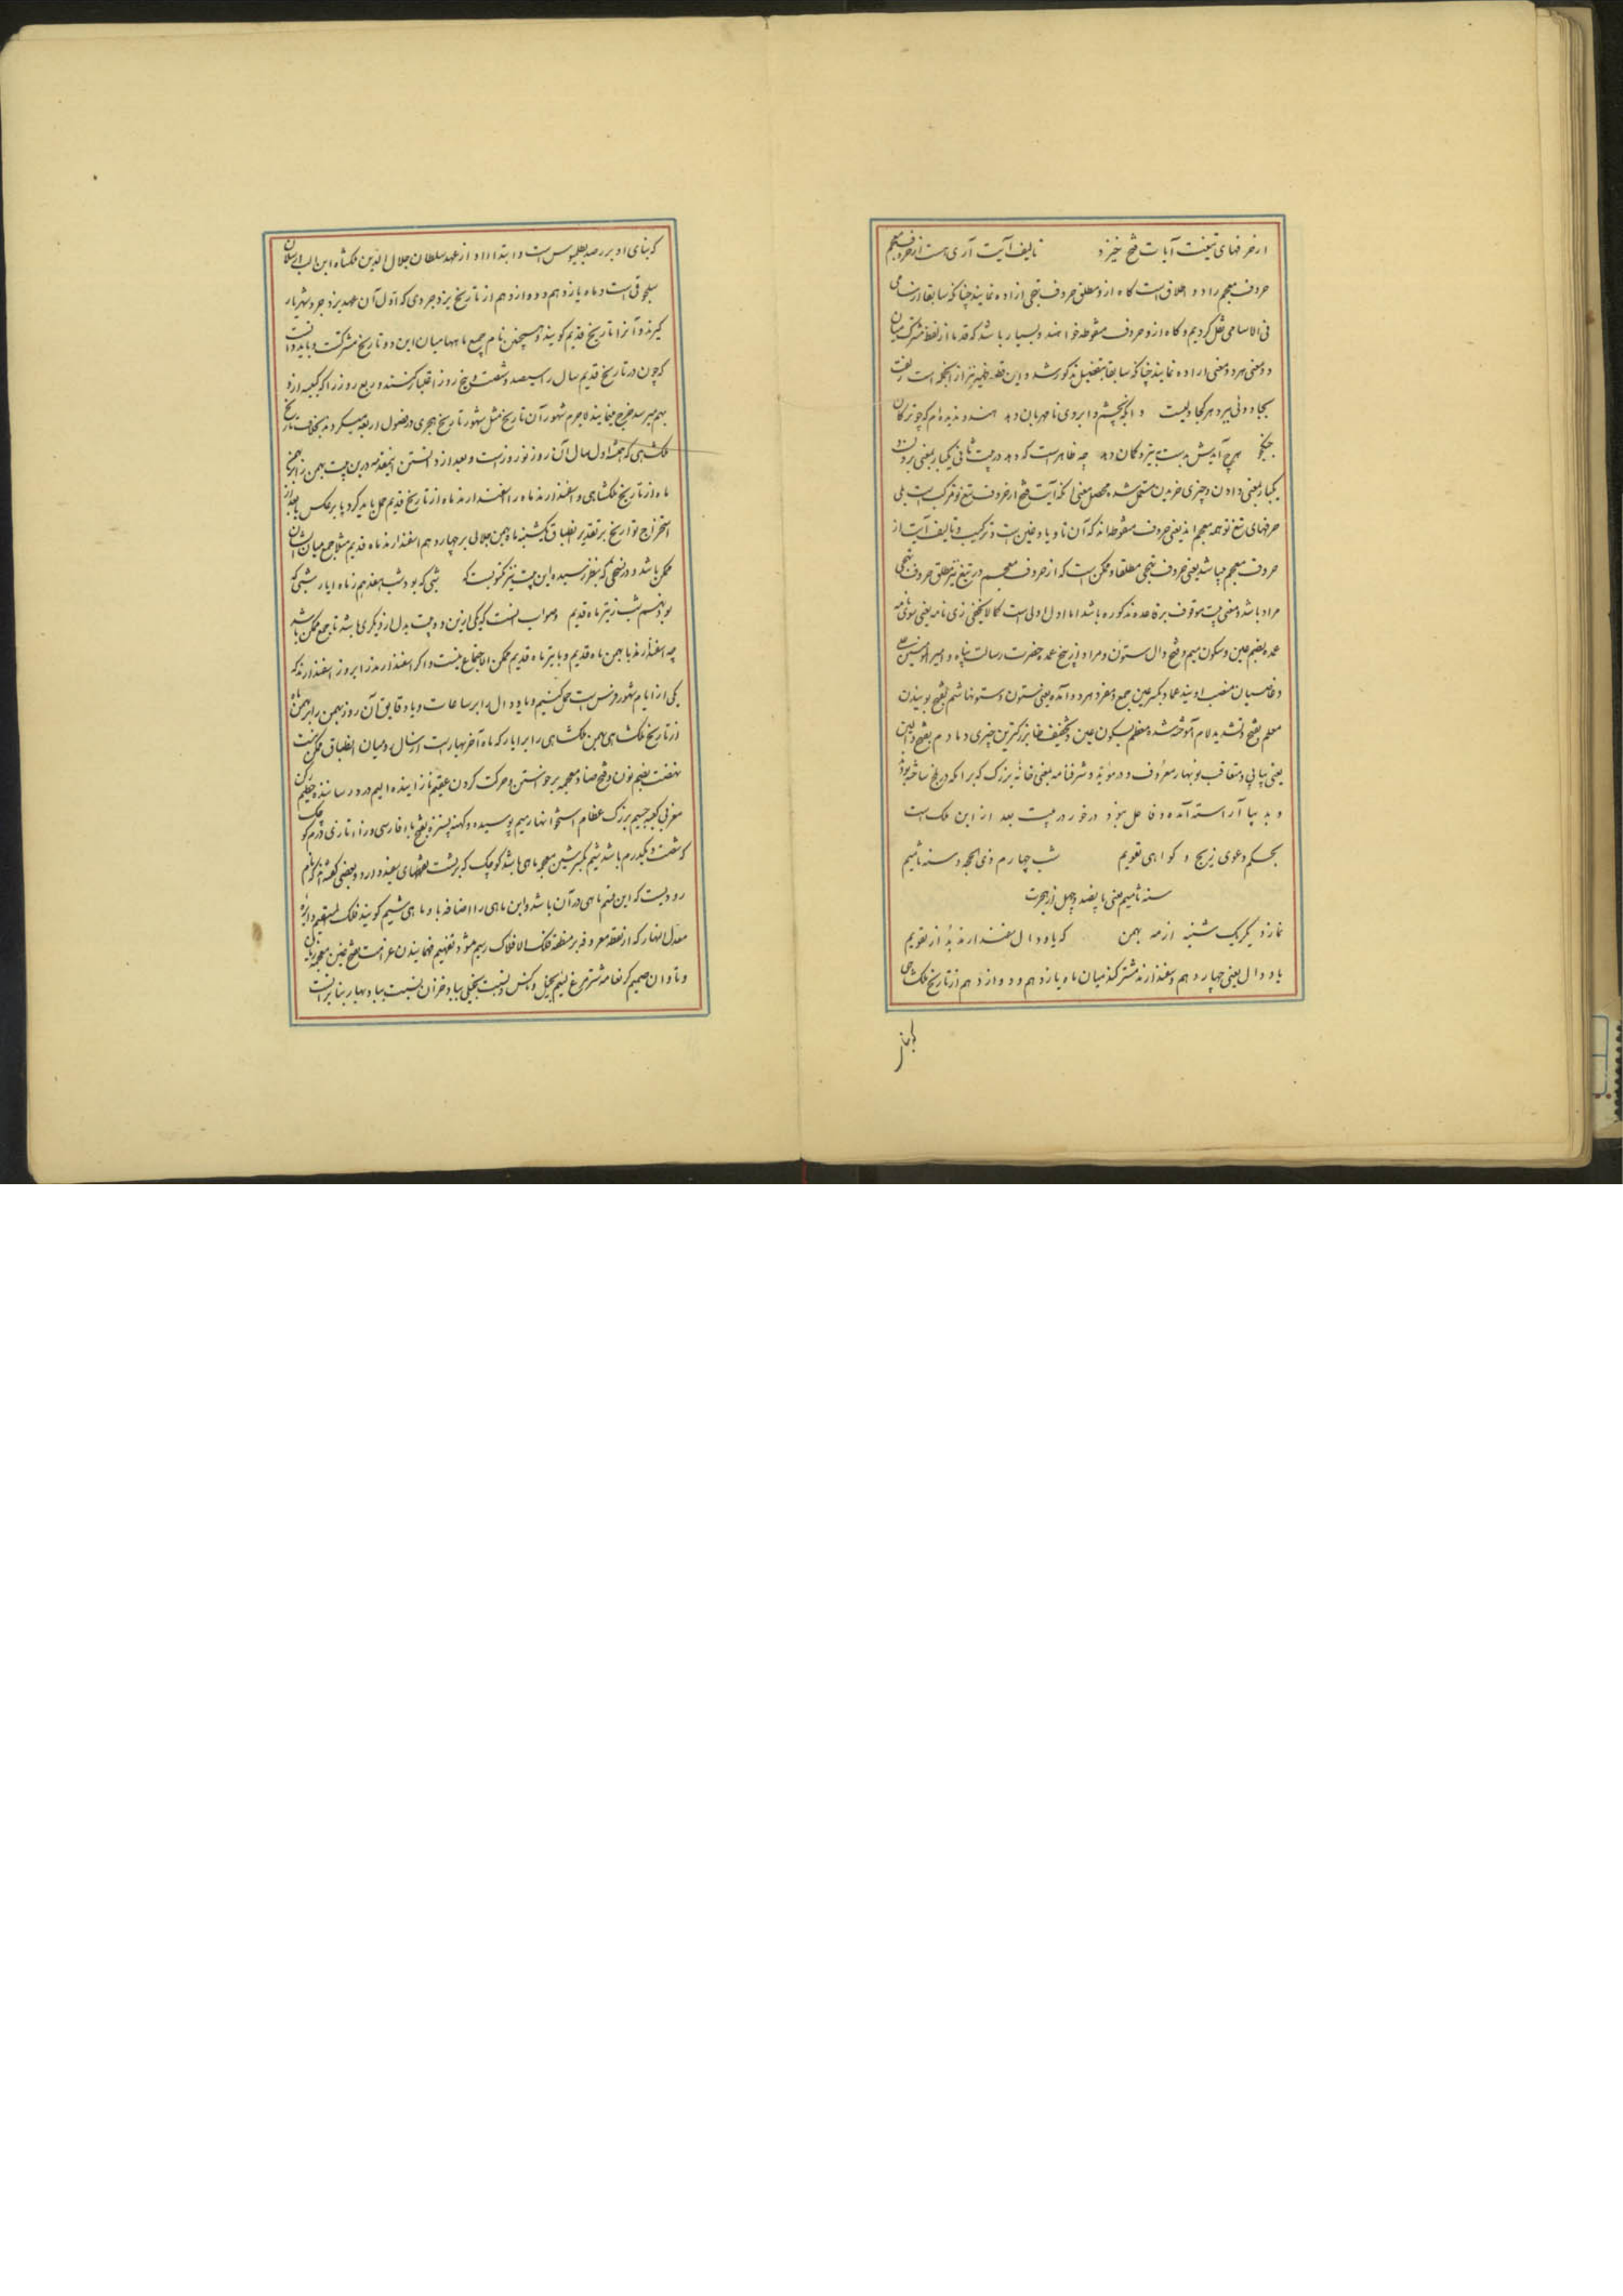 از حرفهای تیغت آیات فتح خیزد تالیف آیت آری هست از حروف معجم
حروف معجم را دو اطلاق است گاه ازو مطلق حروف تهجی اراده نمایند چنانکه سابقا از سامی
فی الاسامی نقل کردیم و گاه ازو حروف منقوطه خواهند و بسیار باشد که قدما از لفظ مشترک میان
دو معنی هر دو معنی اراده نمایند چنانکه سابقا بتفصیل مذکور شد و این قطعه ظهیر نیز از آنجمله است
بجادوئی ببرد هر کجا دلیست وانگه بچشم و ابروی نامهربان دهد هندو ندیده‌ام که چو ترکان
جنگجو هرچ آیدش بدست بتیر و کمان دهد چه ظاهر است که دهد در بیت ثانی یکبار بمعنی
یکبار بمعنی دادن و چیزی خریدن مستعمل شده محصل معنی آنکه آیت فتح از حروف تیغ تو مرکب است بلی
حرفهای تیغ تو همه معجم اند یعنی حروف منقوطه‌اند که آن تا و یا و غین است و ترکیب و تالیف آیت از
حروف معجم میباشد یعنی حروف تهجی مطلقا و ممکن است که از حروف معجم در تیغ نیز مطلق حروف تهجی
مراد باشد و معنی بیت موقوف بر قاعده مذکوره باشد اما اول اولی است کما لا یخفی زی نامه یعنی سوی نامه
عمده بضم عین و سکون میم و فتح دال ستون و مراد از عمده حضرت رسالت پناه و امیر المومنین علی
معلم بفتح و تشدید لام آموخته شده معظم بسکون عین و تخفیف ظا بزرگترین چیزی دمادم بفتح دالین
یعنی پیاپی و متعاقب نوبهار معروف و در موید و شرفنامه بمعنی خانه بزرگ که برامکه در بلخ ساخته بودند
و بدیبا آراسته آمده و فاعل بود در خور در بیت بعد ازین ملک است
بحکم دعوی زیج و گواهی تقویم شب چهارم ذی الحجه سنه ثامیم
سنه ثامیم یعنی پانصد و چهل از هجرت
نماز دیگر یکشنبه از مه بهمن که یاو دال سفندارمذ بد از تقویم
یاو دال یعنی چهاردهم و سفندارمذ مشترکند میان ماه یازدهم و دوازدهم از تاریخ ملکشاهی
که بنای او بر رصد بطلیموس است و ابتدا او از عهد سلطان جلال الدین ملکشاه ابن الب ارسلان
سلجوقی است و ماه یازدهم و دوازدهم از تاریخ یزدجردی که اول آن عهد یزدجرد شهریار
گیرند و آنرا تاریخ قدیم گویند و همچنین نام جمیع ماهها میان این دو تاریخ مشترکست و باید دانست
که چون در تاریخ قدیم سال را سیصد و شصت و پنج روز اعتبار کنند و ربع روز را که کبیسه ازو
بهم میرسد خرج مینمایند لاجرم شهور آن تاریخ مثل شهور تاریخ هجری در فصول اربعه میگردند بخلاف تاریخ
ملکشاهی که همیشه اول سال آن روز نوروز است و بعد از دانستن این مقدمه درین بیت بهمن را بر بهمن
ماه از تاریخ ملکشاهی و اسفندارمذ ماه را اسفندارمذ ماه از تاریخ قدیم حمل باید کرد یا بر عکس تا بعد از
استخراج تواریخ بر تقدیر انطباق یکشنبه ماه بهمن جلالی بر چهاردهم اسفندارمذ ماه قدیم مثلا جمع میان ایشان
ممکن باشد و در نسخی که بنظر رسیده این بیت نیز مکتوبست که شبی که بود شب هفدهم ز ماه ایار شبی که
بود نهم شب ز تیر ماه قدیم و صواب آنست که یکی ازین دو بیت بدل از دیگری باشد تا جمع ممکن باشد
چه اسفندارمذ با بهمن ماه قدیم و با تیر ماه قدیم ممکن الاجتماع نیست و اگر اسفندارمذ را بر روز اسفندارمذ که
یکی از ایام شهور فرس است حمل کنیم و یاو دال را بر ساعات و یا دقایق آن روز بهمن را بر بهمن ماه
از تاریخ ملکشاهی بهمن ملکشاهی را بر ایار که ماه آخر بهار است از سال رومیان انطباق ممکن نیست
نهضت بضم نون و فتح ضاد معجمه برخواستن و حرکت کردن عقیم نازاینده الیم درد رساننده حطیم رکن
مغربی کعبه جسیم بزرگ عظام استخوانها رمیم پوسیده و کهنه پشیزه بفتح باء فارسی و زاء تازی درم کوچک
که شصت و یکدرم باشد شیم بکسر شین معجمه ماهی باشد کوچک که بر پشت نقطهای سفید دارد و بعضی گفته‌اند که نام
رودیست که این قسم ماهی در آن باشد و این ماهی را اضافه با و ماهی شیم گویند فلک المستقیم دایره
معدل النهار که از نقطه معروفه بر منطقه فلک الافلاک رسم میشود تفهیم فهمانیدن غرامت بفتح غین معجمه زیان
و تاوان صمیم کر نعامه شترمرغ لئیم بخیل و ناکس و نسبت بخیلی بباد خزان نسبت بباد بهار بنابر آنست